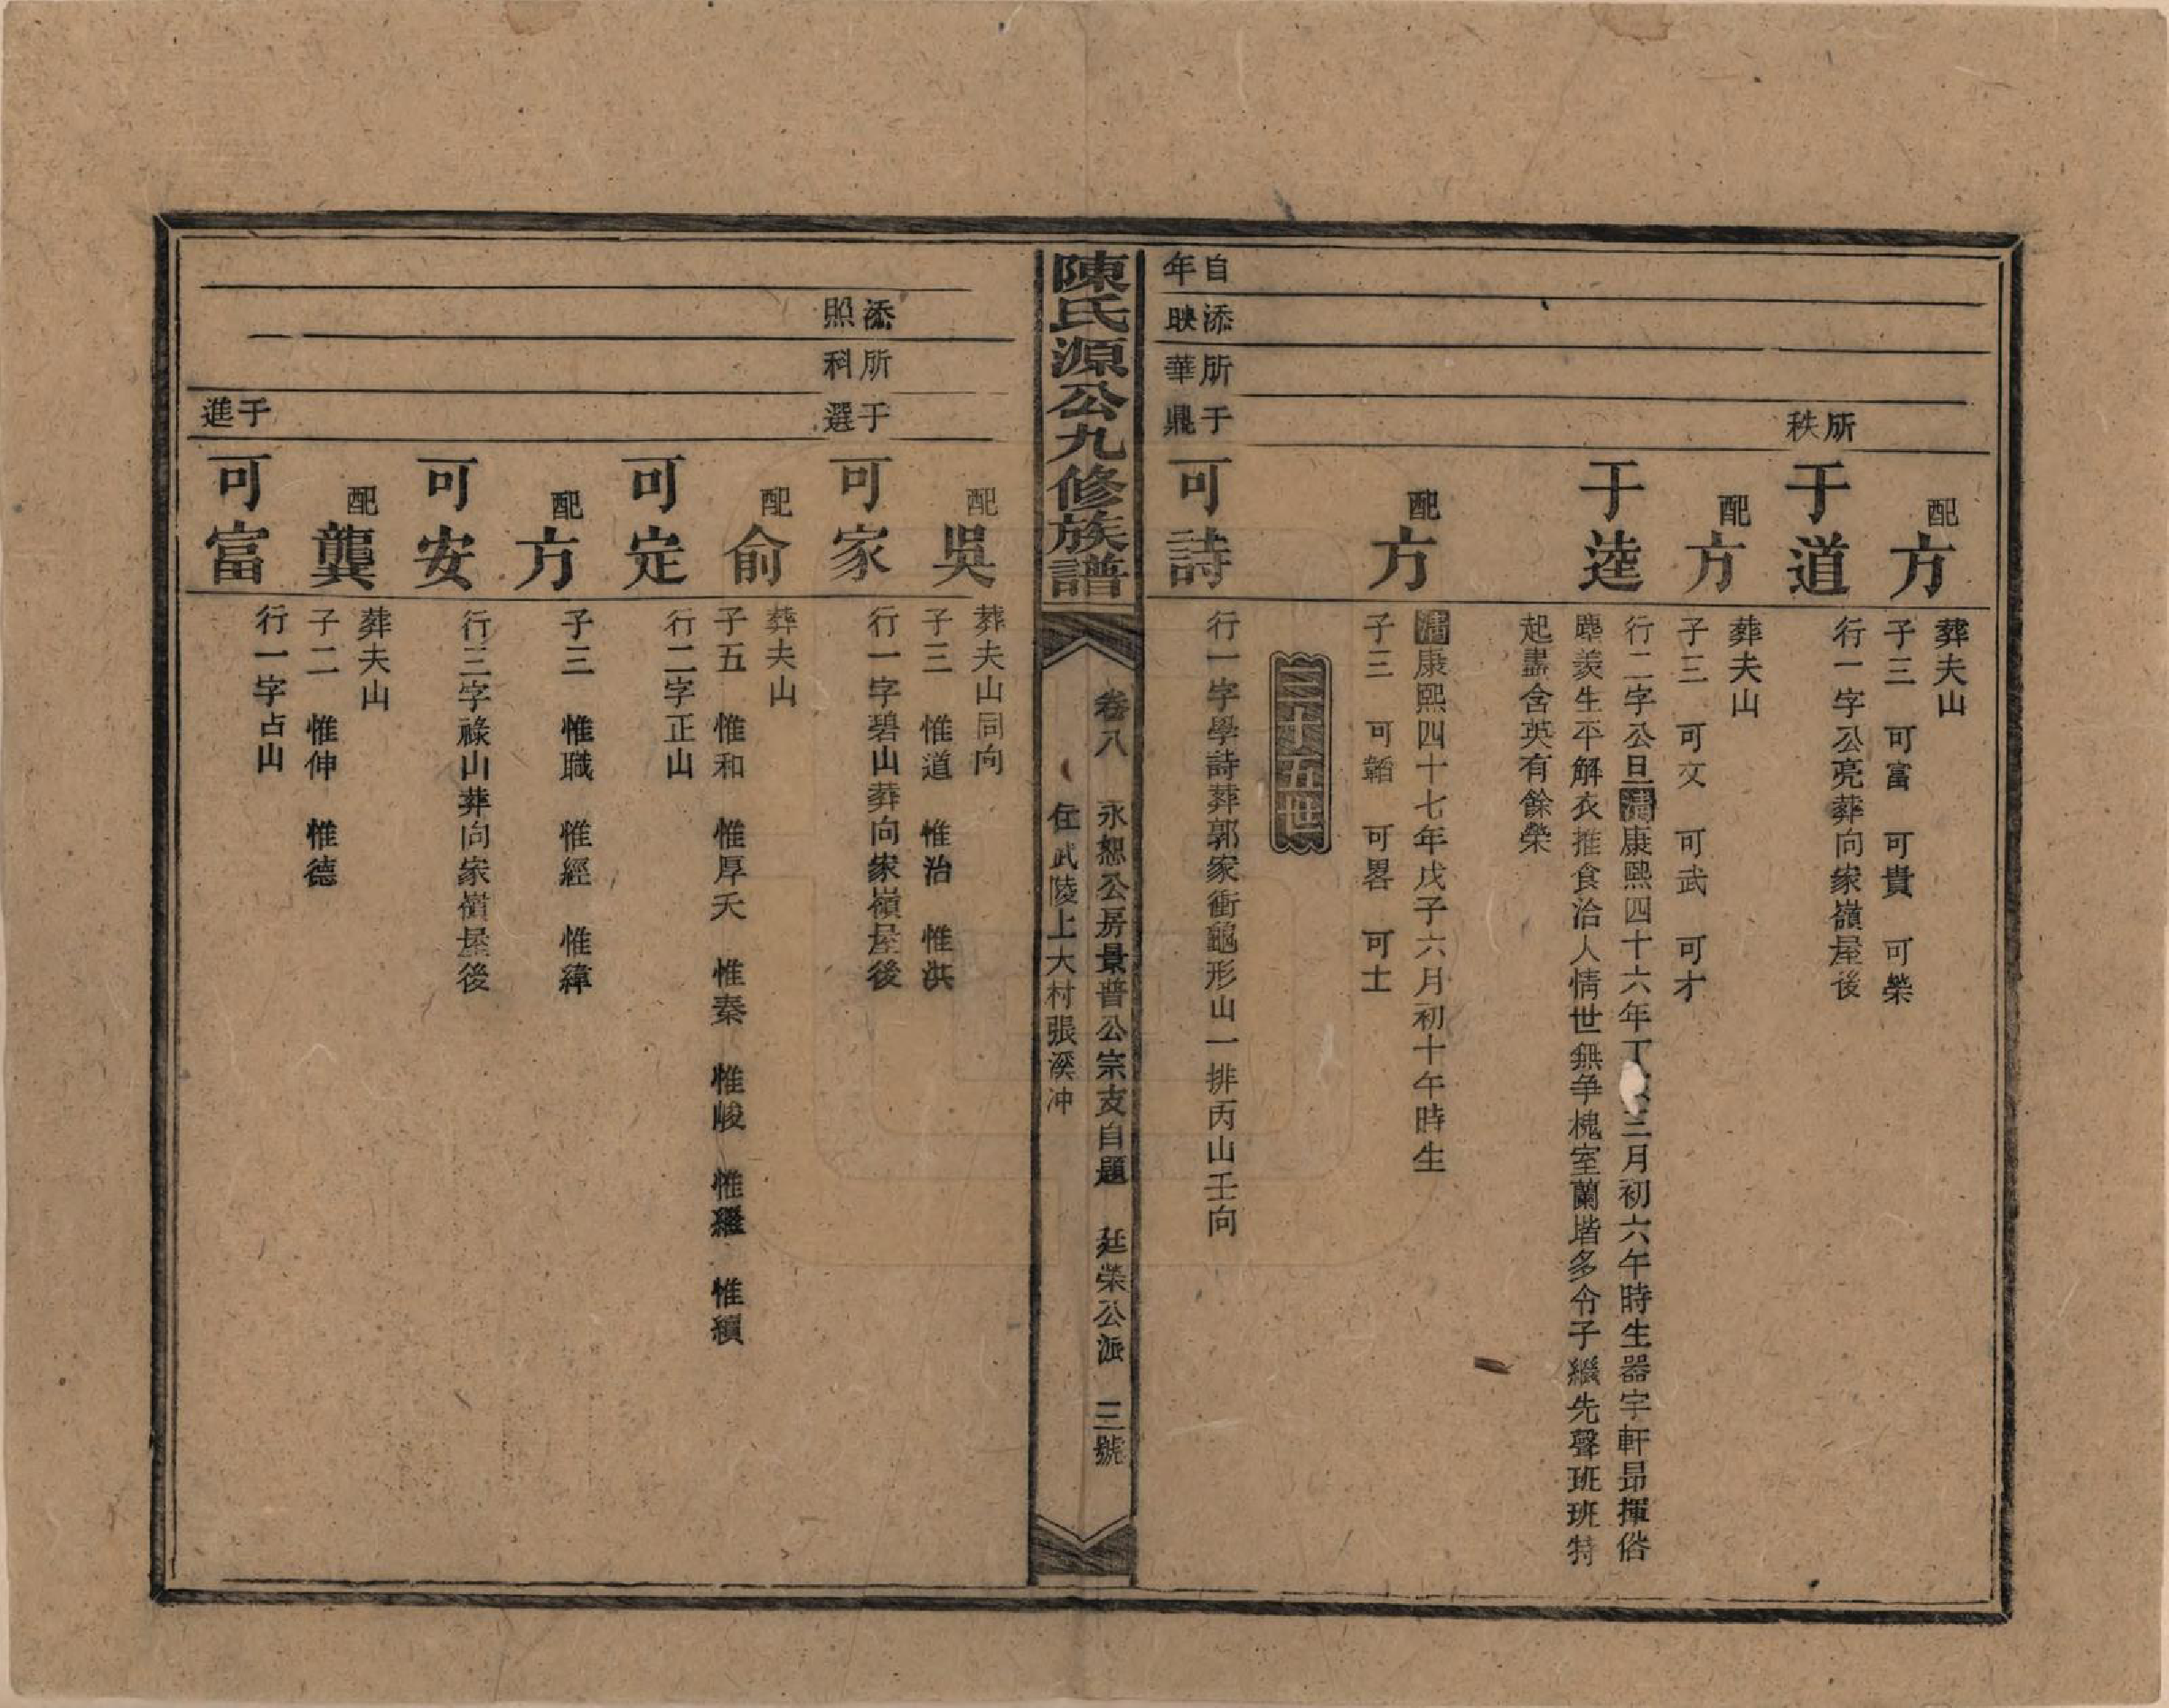 配方
葬夫山
子三　可富　可貴　可榮
所秩
于道
行一字公亮葬向家嶺屋後
配方
葬夫山
子三　可文　可武　可才
于逵
行二字公旦清康熙四十六年丁三月初六午時生器宇軒昂揮俗
塵羨生平解衣推食洽人情世無争槐室蘭堦多令子繼先聲班班特
起盡含英有餘榮
配方
清康熙四十七年戊子六月初十午時生
子三　可韜　可畧　可士
三十五世
自年
添映
所華
于鼎
可詩
行一字學詩葬郭家衝龜形山一排丙山壬向
陳氏源公九修族譜
卷八　永恕公房景普公宗支自題　廷榮公派　三號
住武陵上大村張溪冲
配吳
葬夫山同向
子三　惟道　惟治　惟洪
添照
所科
于選
可家
行一字碧山葬向家嶺屋後
配俞
葬夫山
子五　惟和　惟厚夭　惟秦　惟峻　惟繼　惟纘
可定
行二字正山
配方
子三　惟職　惟經　惟緯
可安
行三字祿山葬向家嶺屋後
配龔
葬夫山
子二　惟伸　惟德
于進
可富
行一字占山